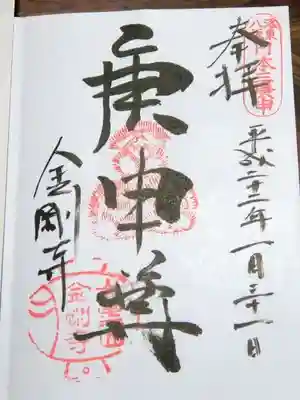 奉拝
平成二十二年一月三十一日
庚申尊
金剛寺
金剛寺